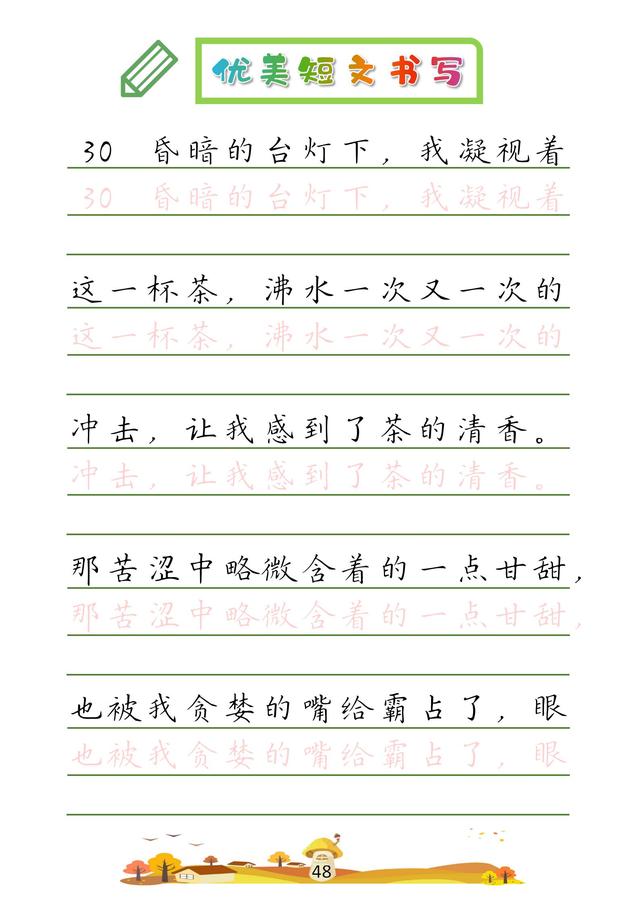 优美短文书写
30 昏暗的台灯下，我凝视着
30 昏暗的台灯下，我凝视着
这一杯茶，沸水一次又一次的
这一杯茶，沸水一次又一次的
冲击，让我感到了茶的清香。
冲击，让我感到了茶的清香。
那苦涩中略微含着的一点甘甜，
那苦涩中略微含着的一点甘甜，
也被我贪婪的嘴给霸占了，眼
也被我贪婪的嘴给霸占了，眼
48